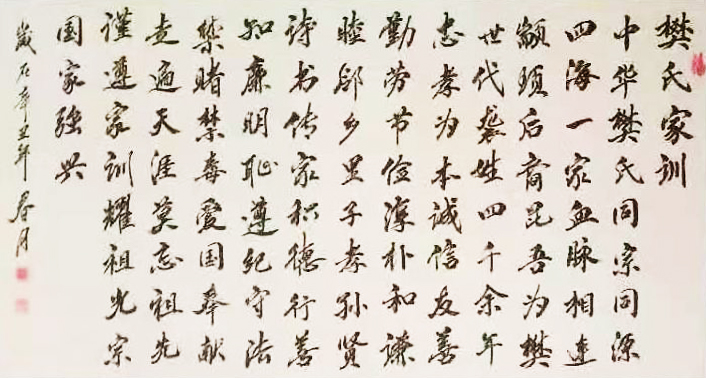 樊氏家训
中华樊氏同宗同源
四海一家血脉相连
颛顼后裔昆吾为樊
世代袭姓四千余年
忠孝为本诚信友善
勤劳节俭淳朴和谦
睦邻乡里子孝孙贤
诗书传家积德行善
知廉明耻遵纪守法
禁赌禁毒爱国奉献
走遍天涯莫忘祖先
谨遵家训耀祖光宗
国家强兴
岁在辛丑年春月